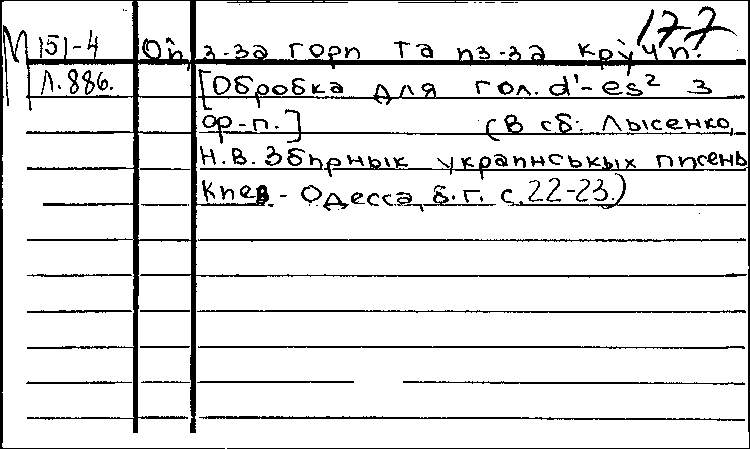 177
М 151-4 Ой, з-за гори та из-за кручи.
Л.886. [Обробка для гол. d'-es² з
ф-п.] (В сб: Лысенко,
Н.В. Збирнык украинськых писень
Киев - Одесса, б.г. с.22-23.)